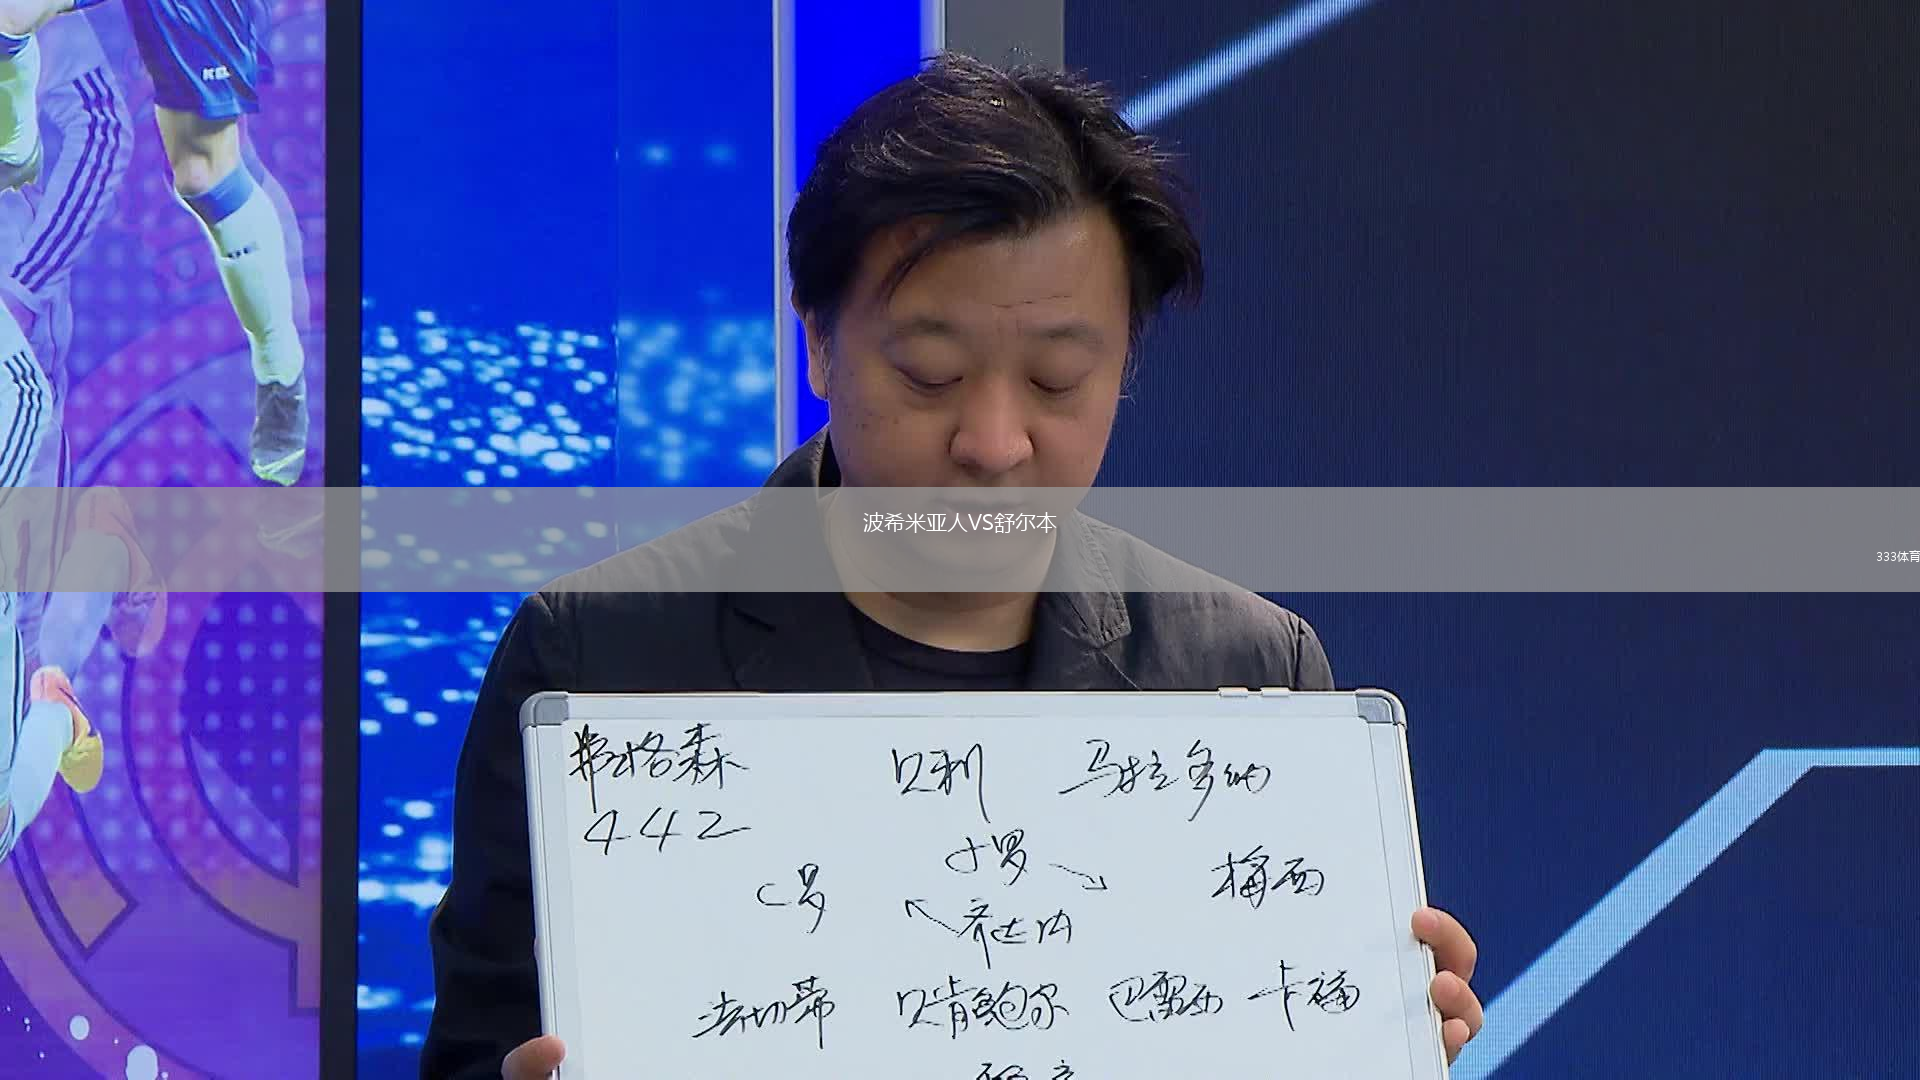 波希米亚人VS舒尔本
333体育
弗格森 贝利 马拉多纳
442
小罗
C罗 梅西
齐达内
法切蒂 贝肯鲍尔 巴雷西 卡福